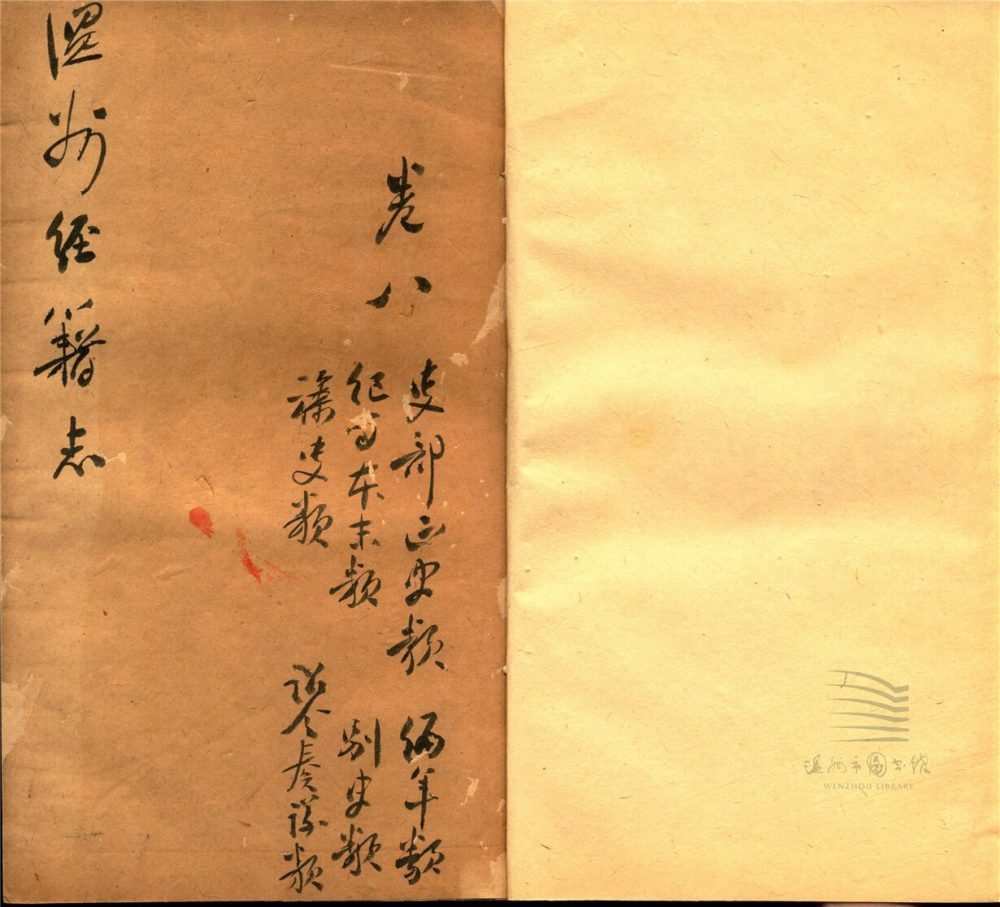 卷八
史部正史類 編年類
紀事本末類 別史類
襍史類 詔令奏議類
溫州經籍志
温州市图书馆
WENZHOU LIBRARY